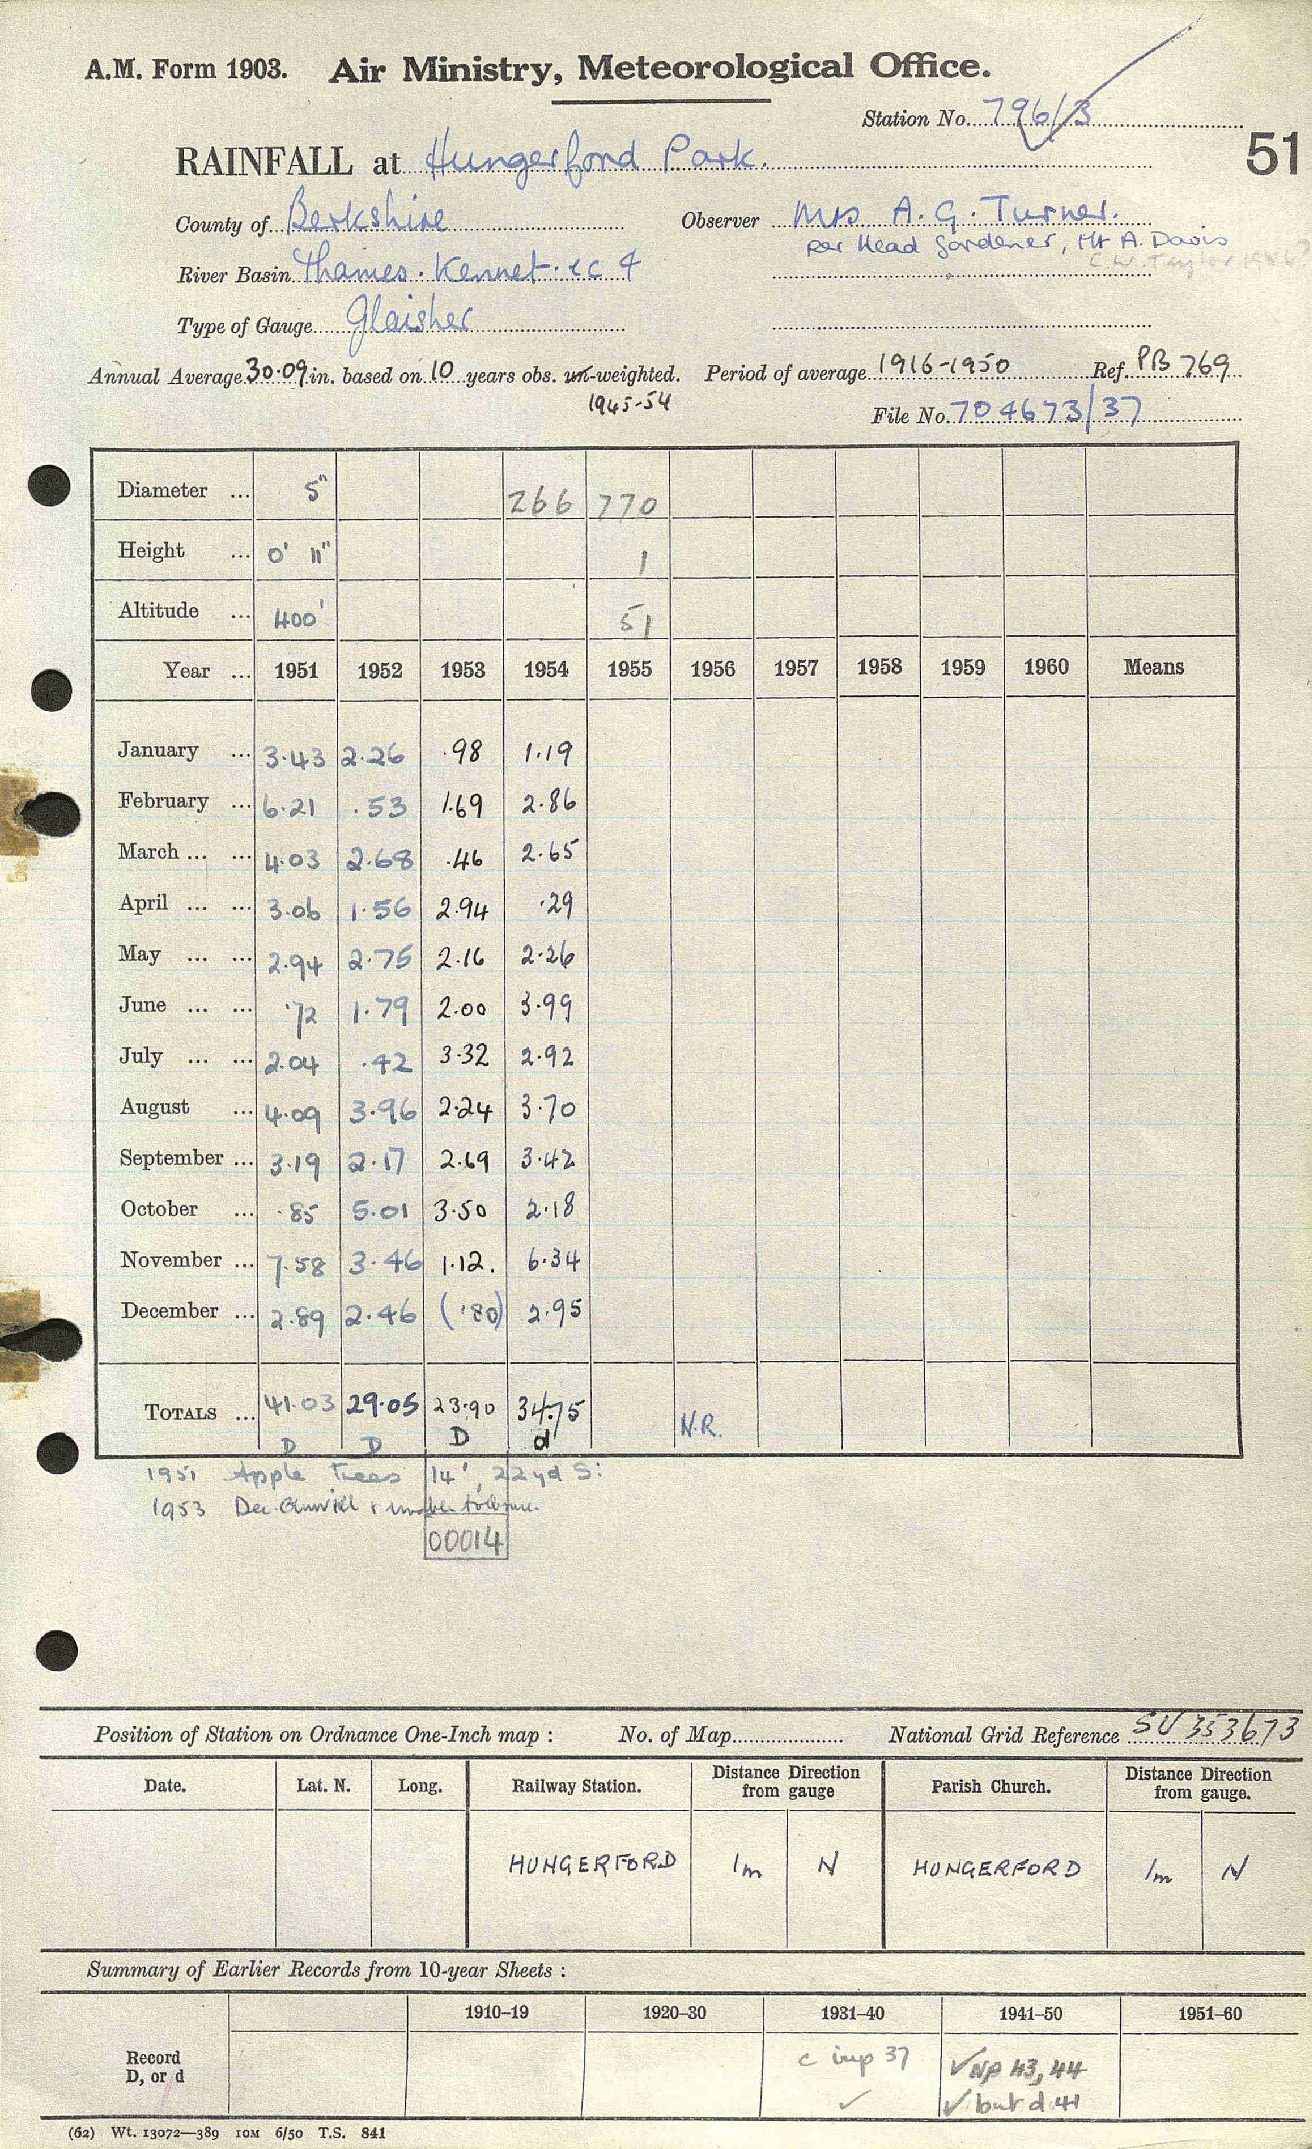 A.M. Form 1903. Air Ministry, Meteorological Office.
Station No. 796/3
RAINFALL at Hungerford Park. 51
County of Berkshire Observer Mrs A. G. Turner.
per Head Gardener, Mr A. Davis
River Basin Thames. Kennet. &c 4 C.W. Taylor
Type of Gauge Glaisher
Annual Average 30.09 in. based on 10 years obs. un-weighted. Period of average 1916-1950 Ref. PB 769
1945-54 File No. 704673/37
Diameter ... 5" 266 770
Height ... 0' 11" 1
Altitude ... 400' 51
Year ... 1951 1952 1953 1954 1955 1956 1957 1958 1959 1960 Means
January ... 3.43 2.26 .98 1.19
February ... 6.21 .53 1.69 2.86
March ... ... 4.03 2.68 .46 2.65
April ... ... 3.06 1.56 2.94 .29
May ... ... 2.94 2.75 2.16 2.26
June ... ... .72 1.79 2.00 3.99
July ... ... 2.04 .42 3.32 2.92
August ... 4.09 3.96 2.24 3.70
September ... 3.19 2.17 2.69 3.42
October ... .85 5.01 3.50 2.18
November ... 7.58 3.46 1.12. 6.34
December ... 2.89 2.46 (.80) 2.95
TOTALS ... 41.03 29.05 23.90 34.75 N.R.
D D D d
1951 Apple Trees 14', 22yd S:
1953 Dec
00014
Position of Station on Ordnance One-Inch map : No. of Map National Grid Reference SU 353673
Date. Lat. N. Long. Railway Station. Distance Direction from gauge Parish Church. Distance Direction from gauge.
HUNGERFORD 1m N HUNGERFORD 1m N
Summary of Earlier Records from 10-year Sheets :
1910-19 1920-30 1931-40 1941-50 1951-60
Record D, or d c inp 37 ✓ NP 43, 44
✓ ✓ but d 41
(62) Wt. 13072—389 10M 6/50 T.S. 841